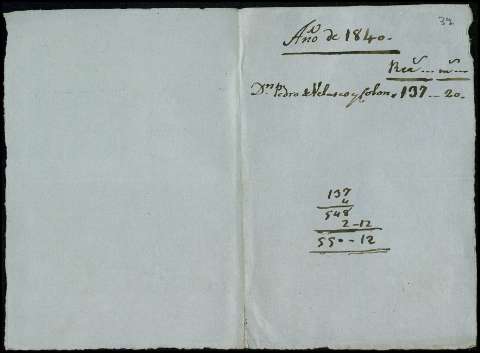 37
Año de 1840.
Rs. ... ms. ...
Dn. Pedro de Velasco y Colon, 137 - 20.
137
4
548
2 - 12
550 - 12